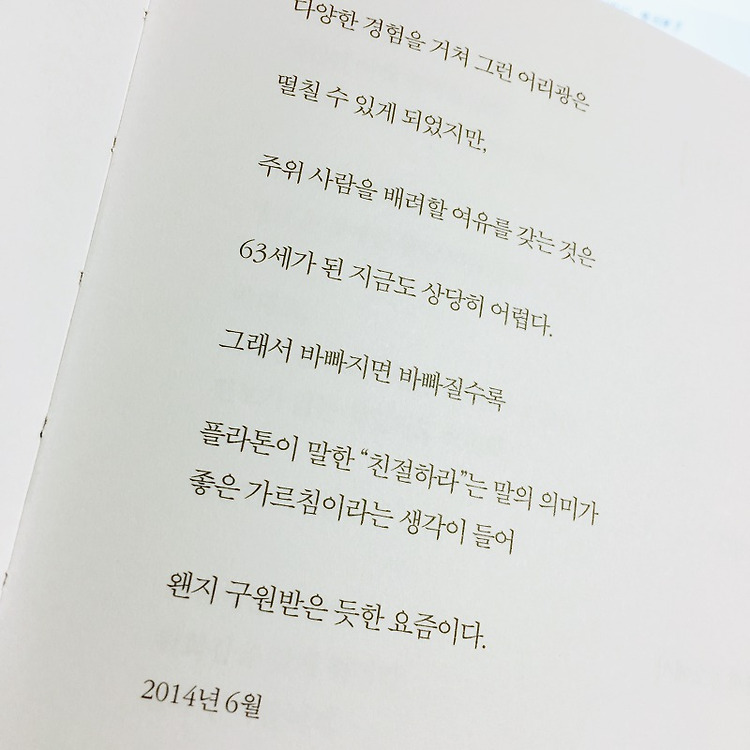 다양한 경험을 거쳐 그런 어리광은
떨칠 수 있게 되었지만,
주위 사람을 배려할 여유를 갖는 것은
63세가 된 지금도 상당히 어렵다.
그래서 바빠지면 바빠질수록
플라톤이 말한 “친절하라”는 말의 의미가
좋은 가르침이라는 생각이 들어
왠지 구원받은 듯한 요즘이다.
2014년 6월